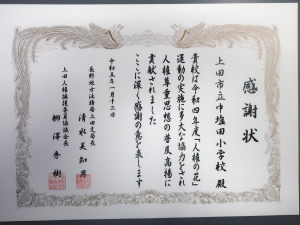 感謝状
上田市立中塩田小学校 殿
貴校は令和四年度「人権の花」
運動の実施に多大な協力をされ
人権尊重思想の普及高揚に
貢献されました
ここに深く感謝の意を表します
令和五年一月十二日
長野地方法務局上田支局長
清水美知
上田人権擁護委員協議会長
柳澤秀樹